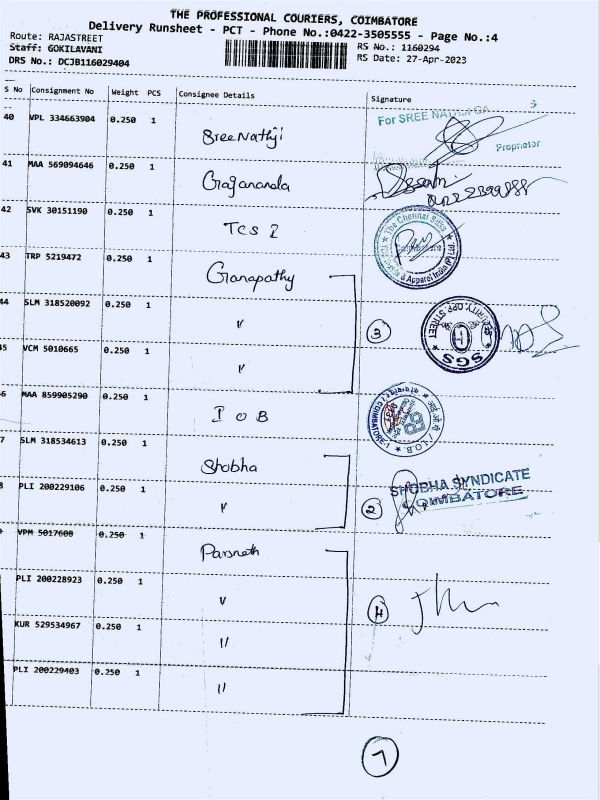 THE PROFESSIONAL COURIERS, COIMBATORE
Delivery Runsheet - PCT - Phone No.:0422-3505555 - Page No.:4
Route: RAJASTREET
Staff: GOKILAVANI
DRS No.: DCJB116029404
RS No.: 1160294
RS Date: 27-Apr-2023
S No Consignment No Weight PCS Consignee Details Signature
40 VPL 334663904 0.250 1 SreeNathji
For SREE
Proprietor
41 MAA 569094646 0.250 1 Gajananda
42 SVK 30151190 0.250 1 TCS 2
The Chennai Silks
& Apparel India (P) Ltd
43 TRP 5219472 0.250 1 Ganapathy
44 SLM 318520092 0.250 1 "
3
SGS
45 VCM 5010665 0.250 1 "
6 MAA 859905290 0.250 1 I O B
7 SLM 318534613 0.250 1 Shobha
8 PLI 200229106 0.250 1 "
2
SHOBHA SYNDICATE
COIMBATORE
9 VPM 5017608 0.250 1 Parsnath
PLI 200228923 0.250 1 "
4
KUR 529534967 0.250 1 "
PLI 200229403 0.250 1 "
7